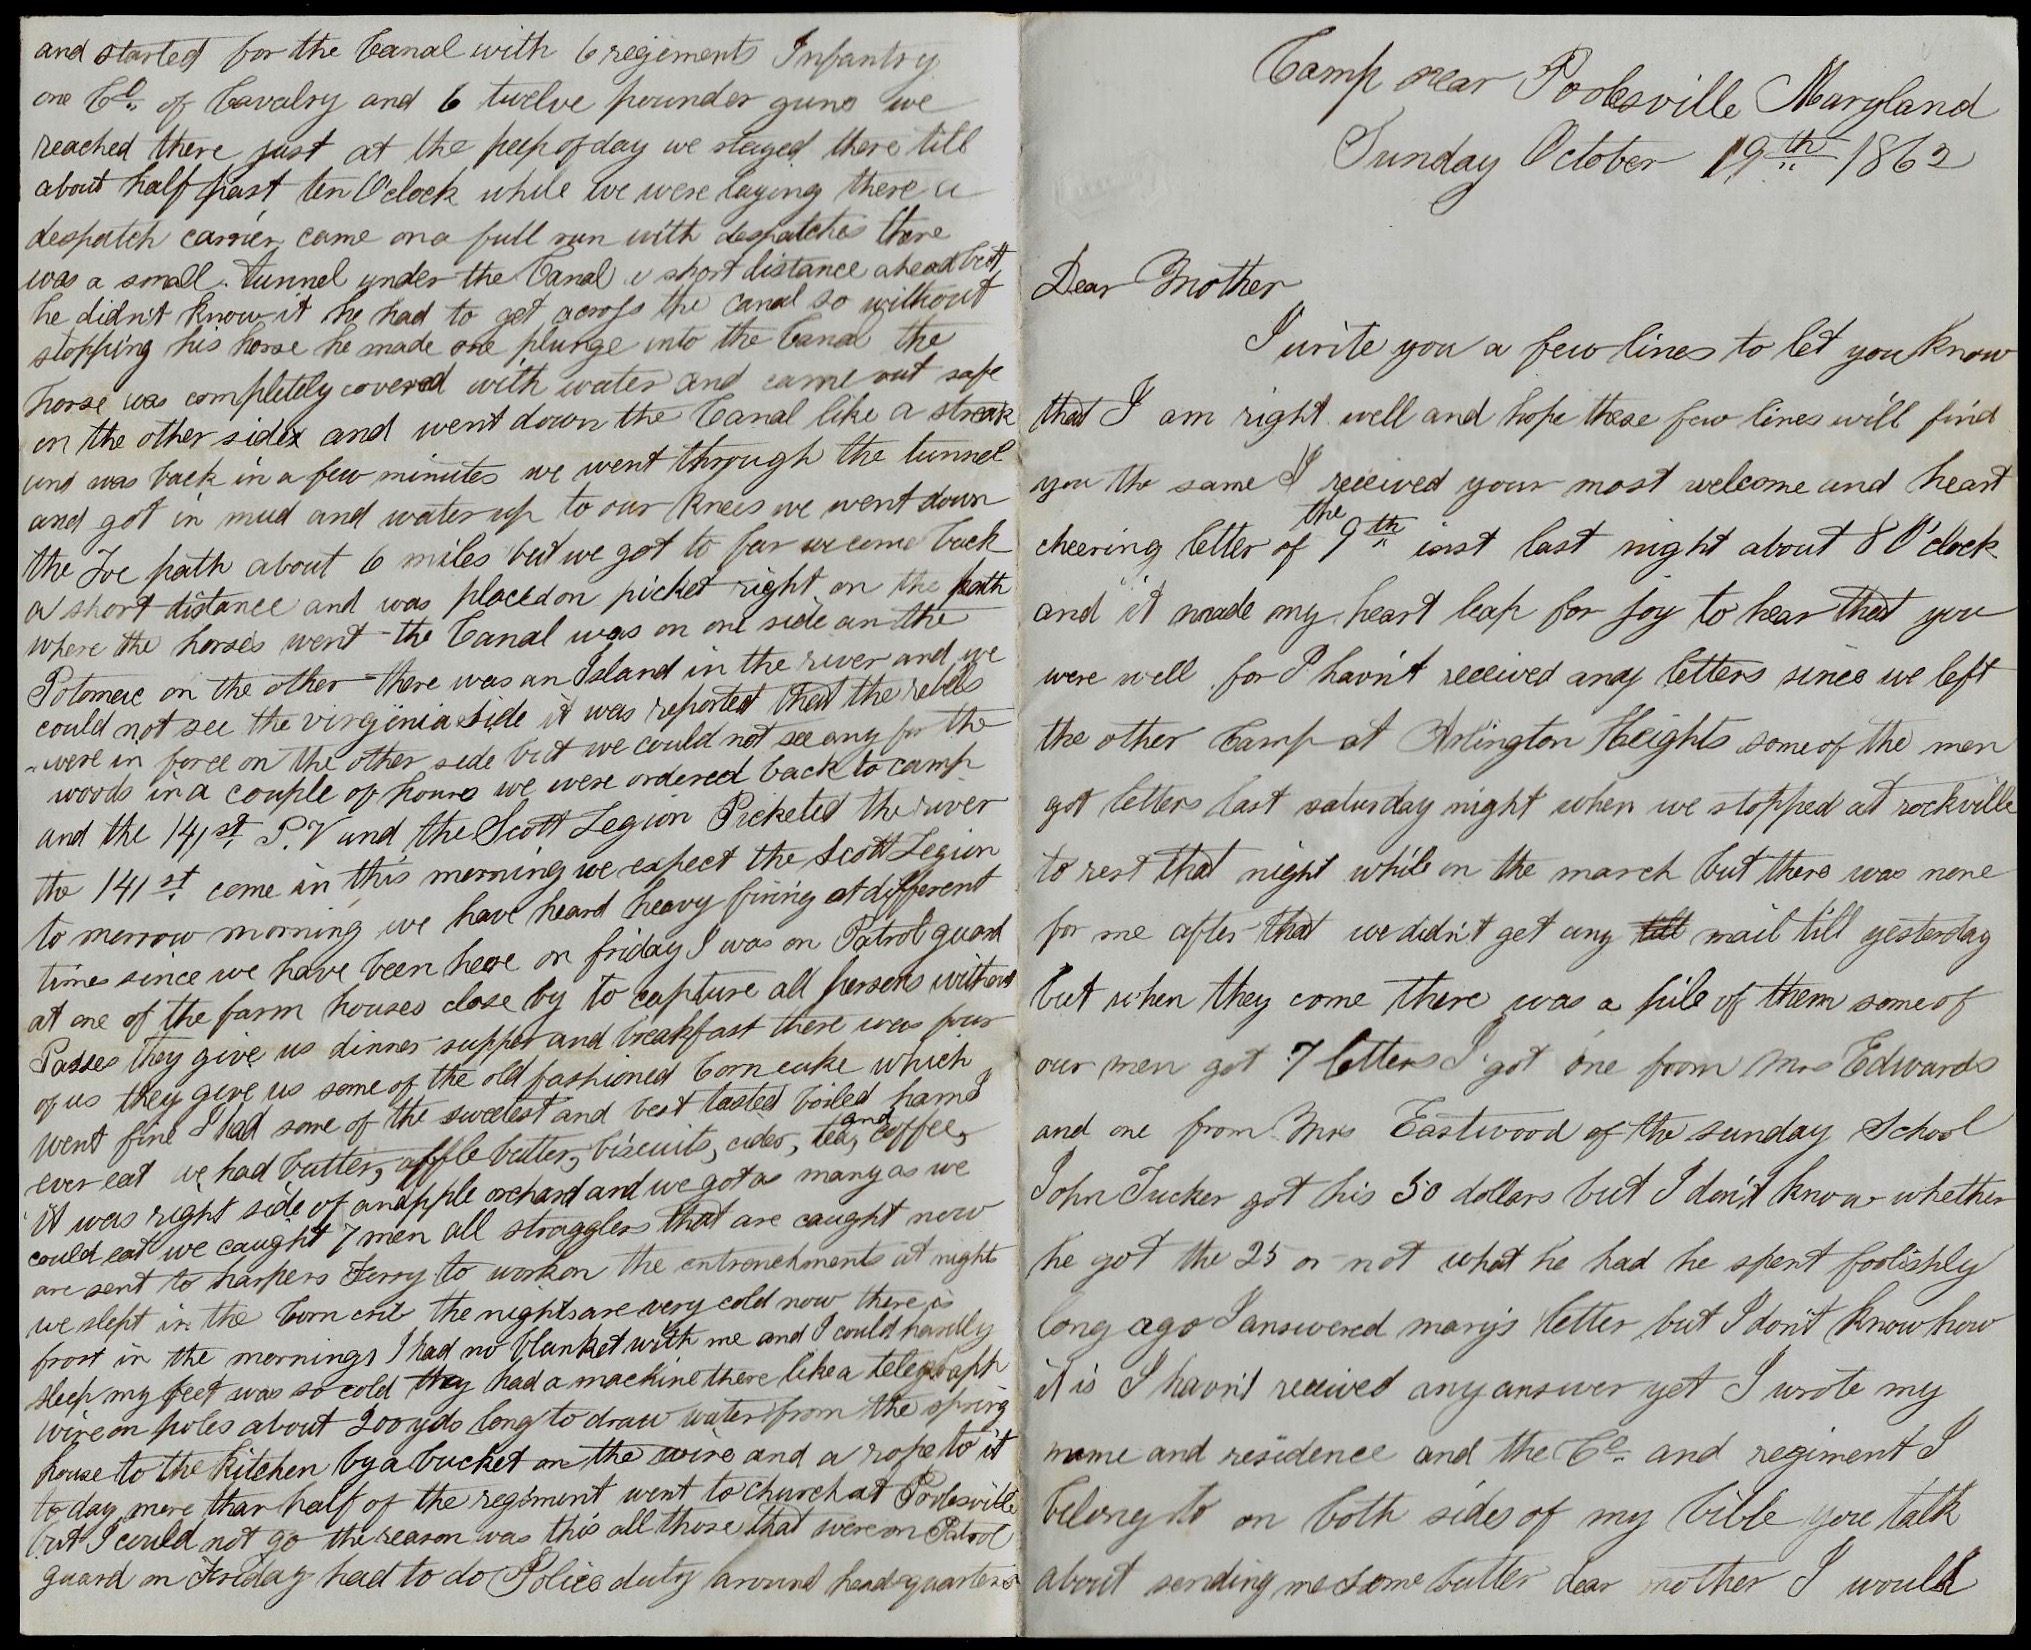 and started for the Canal with 6 regiments Infantry
one Co. of Cavalry and 6 twelve pounder guns we
reached there just at the peep of day we stayed there till
about half past ten O'clock while we were laying there a
despatch carrier came on a full run with despatches there
was a small tunnel under the Canal a short distance ahead but
he didn't know it he had to get across the canal so without
stopping his horse he made one plunge into the Canal the
horse was completely covered with water and came out safe
on the other side and went down the Canal like a streak
and was back in a few minutes we went through the tunnel
and got in mud and water up to our knees we went down
the Toe path about 6 miles but we got to far we come back
a short distance and was placed on picket right on the path
where the horses went the Canal was on one side an the
Potomac on the other there was an Island in the river and we
could not see the virginia side it was reported that the rebels
were in force on the other side but we could not see any for the
woods in a couple of hours we were ordered back to camp
and the 141st. P.V and the Scott Legion Picketed the river
the 141st. come in this morning we expect the Scott Legion
to morrow morning we have heard heavy firing at different
times since we have been here on friday I was on Patrol guard
at one of the farm houses close by to capture all persons without
Passes they give us dinner supper and breakfast there was four
of us they give us some of the old fashioned Corn cake which
went fine I had some of the sweetest and best tasted boiled ham I
ever eat we had butter, apple butter, biscuits, cider, tea, and coffee,
it was right side of an apple orchard and we got as many as we
could eat we caught 7 men all stragglers that are caught now
are sent to harpers Ferry to work on the entrenchments at night
we slept in the Corn crib the nights are very cold now there is
frost in the mornings I had no blanket with me and I could hardly
sleep my feet was so cold they had a machine there like a telegraph
wire on poles about 200 yds long to draw water from the spring
house to the kitchen by a bucket on the wire and a rope to it
to day more than half of the regiment went to church at Poolesville
but I could not go the reason was this all those that were on Patrol
guard on Friday had to do Police duty around head-quarters
Camp near Poolesville Maryland
Sunday October 19th 1862
Dear Mother
I write you a few lines to let you know
that I am right well and hope these few lines will find
you the same I received your most welcome and heart
cheering letter of the 9th inst last night about 8 O'clock
and it made my heart leap for joy to hear that you
were well for I havn't received any letters since we left
the other Camp at Arlington Heights some of the men
got letters last saturday night when we stopped at rockville
to rest that night while on the march but there was none
for me after that we didn't get any till mail till yesterday
but when they come there was a pile of them some of
our men got 7 letters I got one from Mrs Edwards
and one from Mrs Eastwood of the sunday School
John Tucker got his 50 dollars but I don't know whether
he got the 25 or not what he had he spent foolishly
long ago I answered mary's letter but I don't know how
it is I havn't received any answer yet I wrote my
name and residence and the Co. and regiment I
belong to on both sides of my bible you talk
about sending me some butter dear mother I would